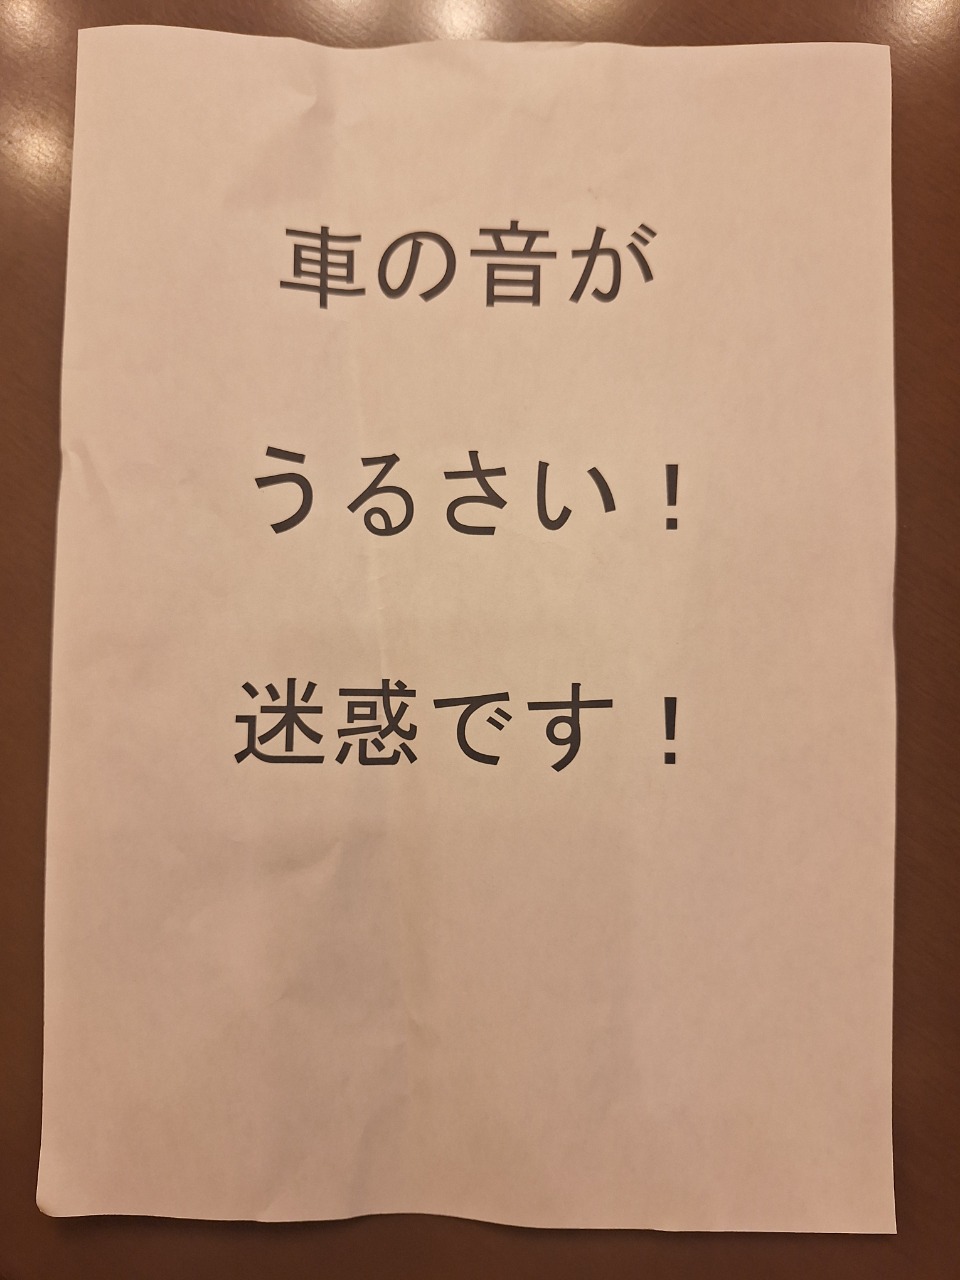 車の音が
うるさい！
迷惑です！